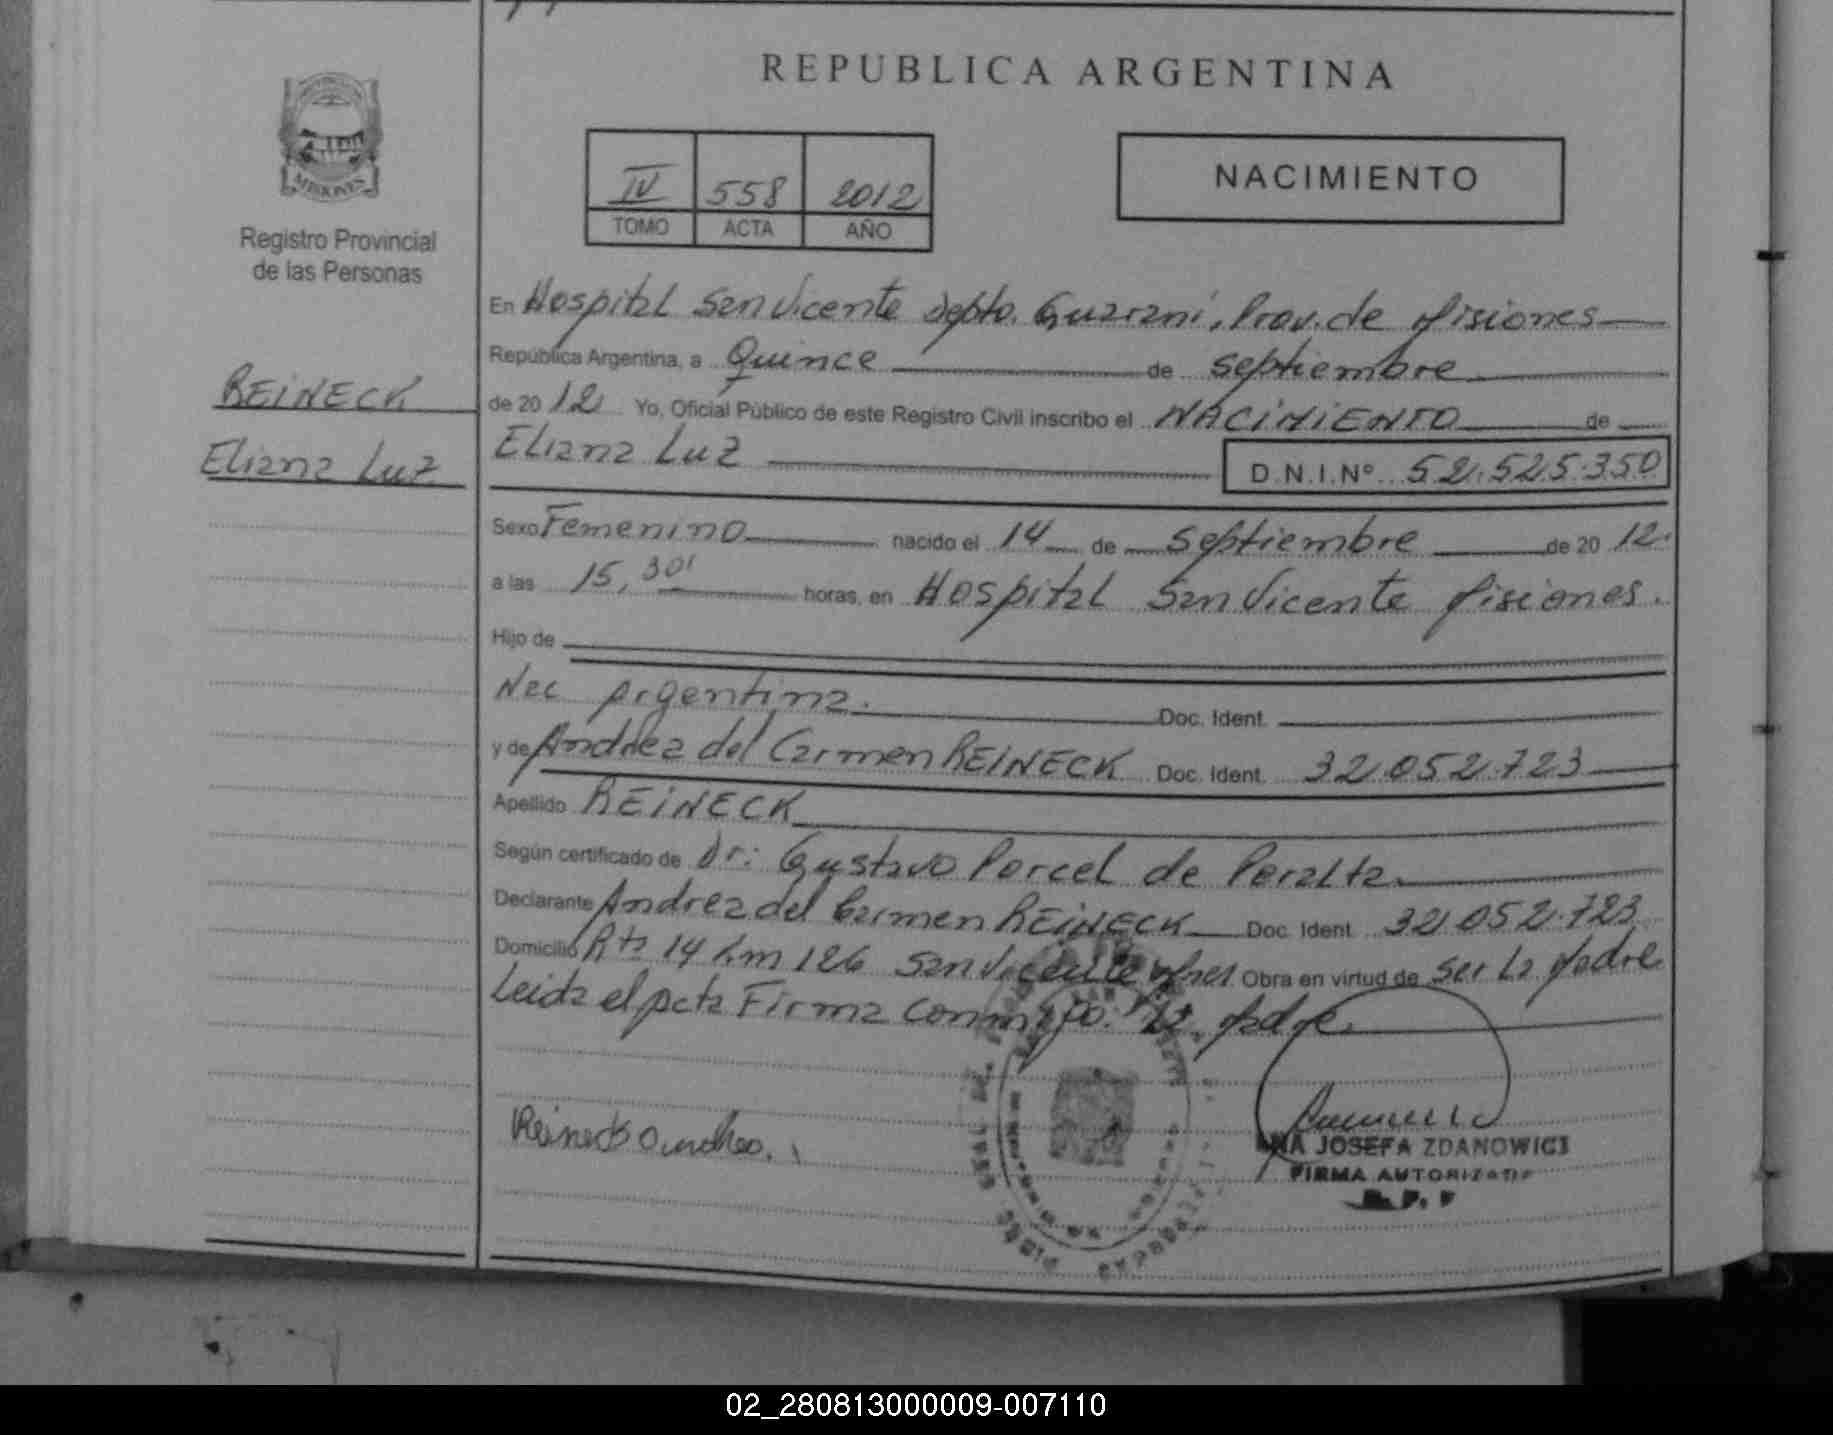 REPUBLICA ARGENTINA
MISIONES
Registro Provincial
de las Personas
IV 558 2012
TOMO ACTA AÑO
NACIMIENTO
REINECK
Eliana Luz
En Hospital San Vicente Depto. Guaraní, Prov. de Misiones
República Argentina, a Quince de Septiembre
de 20 12 Yo, Oficial Público de este Registro Civil inscribo el NACIMIENTO de
Eliana Luz D.N.I.Nº 52.525.350
Sexo Femenino nacido el 14 de Septiembre de 20 12.
a las 15,30' horas, en Hospital San Vicente Misiones.
Hijo de
Nac Argentina. Doc. Ident.
y de Andrea del Carmen REINECK Doc. Ident. 32.052.723
Apellido REINECK
Según certificado de Dr: Gustavo Porcel de Peralta.
Declarante Andrea del Carmen REINECK Doc. Ident. 32.052.723
Domicilio Rta 14 Km 126 San Vicente Mnes. Obra en virtud de Ser La Madre
Leida el Acta Firma Conmigo: La Madre.
Reineck Andrea.
ANA JOSEFA ZDANOWICZ
FIRMA AUTORIZADA
02_280813000009-007110